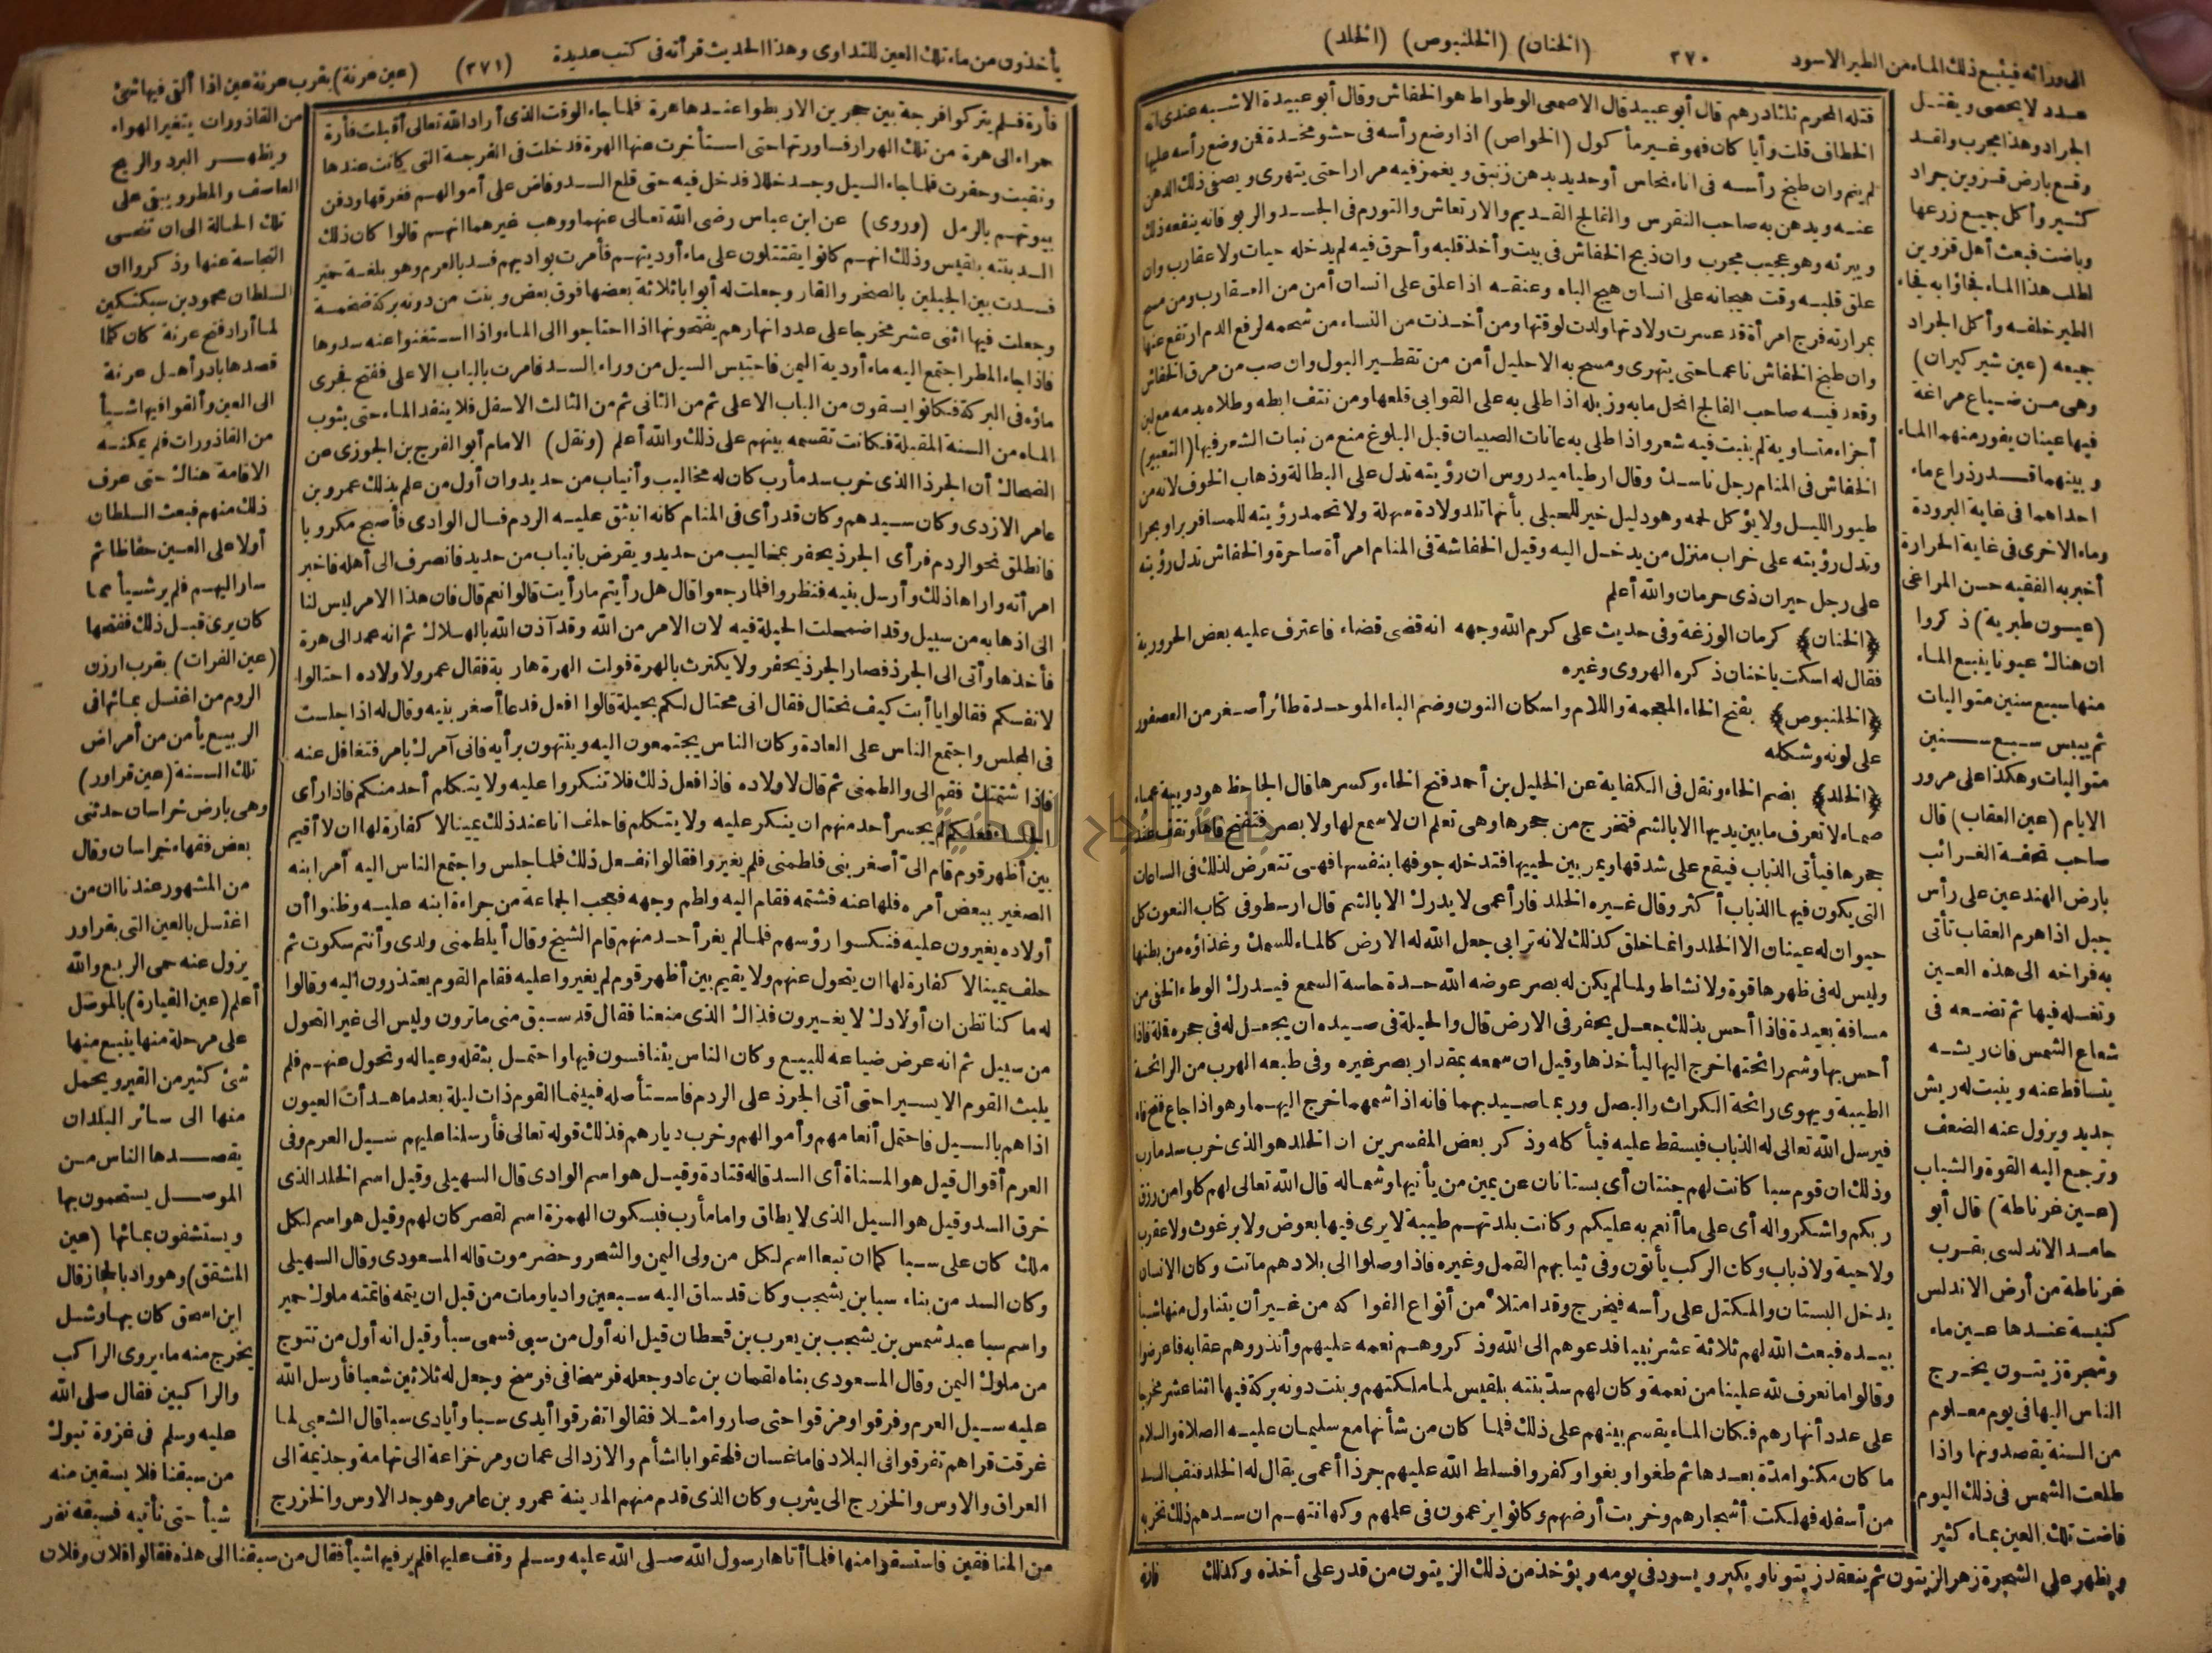 الى ورائه فيتبع ذلك الماء من الطير الاسود
٣٧٠
(الخنان) (الخلنبوص) (الخلد)
عدد لا يحصى ويقتل
الجراد وهذا مجرب ولقد
وقع بارض قزوين جراد
كثير وأكل جميع زرعها
وباضت فبعث أهل قزوين
لطلب هذا الماء فجاؤا به فجاء
الطير خلفه وأكل الجراد
جميعه (عين شيركيران)
وهى من ضياع مراغة
فيها عينان يفور منهما الماء
وبينهما قدر ذراع ماء
احداهما فى غاية البرودة
وماء الاخرى فى غاية الحرارة
أخبر به الفقيه حسن المراغى
(عيون طبرية) ذكروا
ان هناك عيونا ينبع الماء
منها سبع سنين متواليات
ثم ييبس سبع سنين
متواليات وهكذا على مرور
الايام (عين العقاب) قال
صاحب تحفة الغرائب
بارض الهند عين على رأس
جبل اذا هرم العقاب تأتى
به فراخه الى هذه العين
وتغسله فيها ثم تضعه فى
شعاع الشمس فان ريشه
يتساقط عنه وينبت له ريش
جديد ويزول عنه الضعف
وترجع اليه القوة والشباب
(عين غرناطة) قال أبو
حامد الاندلسى بقرب
غرناطة من أرض الاندلس
كنيسة عندها عين ماء
وشجرة زيتون يخرج
الناس اليها فى يوم معلوم
من السنة يقصدونها واذا
طلعت الشمس فى ذلك اليوم
فاضت تلك العين بماء كثير
ويظهر على الشجرة زهر الزيتون ثم ينعقد زيتونا ويكبر ويسود فى يومه ويؤخذ من ذلك الزيتون من قدر على أخذه وكذلك
قتله المحرم ثلثا درهم قال أبو عبيد قال الاصمعى الوطواط هو الخفاش وقال أبو عبيدة الاشبه عندى انه
الخطاف قلت وأيا كان فهو غير مأكول (الخواص) اذا وضع رأسه فى حشو مخدة فمن وضع رأسه عليها
لم ينم وان طبخ رأسه فى اناء نحاس أو حديد بدهن زنبق ويغمز فيه مرارا حتى يتهرى ويصفى ذلك الدهن
عنه ويدهن به صاحب النقرس والفالج القديم والارتعاش والتورم فى الجسد والربو فانه ينفعه ذلك
ويبرئه وهو عجيب مجرب وان ذبح الخفاش فى بيت وأخذ قلبه وأحرق فيه لم يدخله حيات ولا عقارب وان
علق قلبه وقت هيجانه على انسان هيج الباه وعنقه اذا علق على انسان أمن من العقارب ومن مسح
بمرارته فرج امرأة قد عسرت ولادتها ولدت لوقتها ومن أخذت من النساء من شحمه لرفع الدم ارتفع عنها
وان طبخ الخفاش ناعما حتى يتهرى ومسح به الاحليل أمن من تقطير البول وان صب من مرق الخفاش
وقعد فيه صاحب الفالج انحل ما به وزبله اذا طلى به على القوابى قلعها ومن نتف ابطه وطلاه بدمه مع لبن
أجزاء متساوية لم ينبت فيه شعر واذا طلى به عانات الصبيان قبل البلوغ منع من نبات الشعر فيها (التعبير)
الخفاش فى المنام رجل ناسك وقال ارطياميدروس ان رؤيته تدل على البطالة وذهاب الخوف لانه من
طيور الليل ولا يؤكل لحمه وهو دليل خير للحبلى بأنها تلد ولادة سهلة ولا تحمد رؤيته للمسافر برا وبحرا
وتدل رؤيته على خراب منزل من يدخل اليه وقيل الخفاشة فى المنام امرأة ساحرة والخفاش تدل رؤيته
على رجل حيران ذى حرمان والله أعلم
﴿الخنان﴾ كرمان الوزغة وفى حديث على كرم الله وجهه انه قضى قضاء فاعترف عليه بعض الحرورية
فقال له اسكت يا خنان ذكره الهروى وغيره
﴿الخلنبوص﴾ بفتح الخاء المعجمة واللام واسكان النون وضم الباء الموحدة طائر أصغر من العصفور
على لونه وشكله
﴿الخلد﴾ بضم الخاء ونقل فى الكفاية عن الخليل بن أحمد فتح الخاء وكسرها قال الجاحظ هو دويبة عمياء
صماء لا تعرف ما بين يديها الا بالشم فتخرج من جحرها وهى تعلم ان لا سمع لها ولا بصر فتفتح فاها وتقف عند
جحرها فيأتى الذباب فيقع على شدقها ويمر بين لحييها فتدخله جوفها بنفسها فهى تتعرض لذلك فى الساعات
التى يكون فيها الذباب أكثر وقال غيره الخلد فأر أعمى لا يدرك الا بالشم قال ارسطو فى كتاب النعوت كل
حيوان له عينان الا الخلد وانما خلق كذلك لانه ترابى جعل الله له الارض كالماء للسمك وغذاؤه من بطنها
وليس له فى ظهرها قوة ولا نشاط ولما لم يكن له بصر عوضه الله حدة حاسة السمع فيدرك الوطء الخفى من
مسافة بعيدة فاذا أحس بذلك جعل يحفر فى الارض قال والحيلة فى صيده ان يجعل له فى جحره قملة فاذا
أحس بها وشم رائحتها خرج اليها ليأخذها وقيل ان سمعه بمقدار بصر غيره وفى طبعه الهرب من الرائحة
الطيبة ويهوى رائحة الكراث والبصل وربما صيد بهما فانه اذا شمهما خرج اليهما وهو اذا جاع فتح فاه
فيرسل الله تعالى له الذباب فيسقط عليه فيأكله وذكر بعض المفسرين ان الخلد هو الذى خرب سد مأرب
وذلك ان قوم سبا كانت لهم جنتان أى بستانان عن يمين من يأتيها وشماله قال الله تعالى لهم كلوا من رزق
ربكم واشكروا له أى على ما أنعم به عليكم وكانت بلدتهم طيبة لا يرى فيها بعوض ولا برغوث ولا عقرب
ولا حية ولا ذباب وكان الركب يأتون وفى ثيابهم القمل وغيره فاذا وصلوا الى بلادهم ماتت وكان الانسان
يدخل البستان والمكتل على رأسه فيخرج وقد امتلأ من أنواع الفواكه من غير أن يتناول منها شيأ
بيده فبعث الله لهم ثلاثة عشر نبيا فدعوهم الى الله وذكروهم نعمه عليهم وأنذروهم عقابه فاعرضوا
وقالوا ما نعرف لله علينا من نعمة وكان لهم سد بنته بلقيس لما ملكتهم وبنت دونه بركة فيها اثنا عشر مخرجا
على عدد أنهارهم فكان الماء يقسم بينهم على ذلك فلما كان من شأنها مع سليمان عليه الصلاة والسلام
ما كان مكثوا مدة بعدها ثم طغوا وبغوا وكفروا فسلط الله عليهم جرذا أعمى يقال له الخلد فنقب السد
من أسفله فهلكت أشجارهم وخربت أرضهم وكانوا يزعمون فى علمهم وكهانتهم ان سدهم ذلك تخربه
فارة
يأخذون من ماء تلك العين للتداوى وهذا الحديث قرأته فى كتب عديدة
(٣٧١)
(عين عرنة) بقرب عرنة عين اذا ألقى فيها شئ
فأرة فلم يتركوا فرجة بين حجرين الا ربطوا عندها هرة فلما جاء الوقت الذى أراد الله تعالى أقبلت فأرة
حمراء الى هرة من تلك الهرار فساورتها حتى استأخرت عنها الهرة فدخلت فى الفرجة التى كانت عندها
ونقبت وحفرت فلما جاء السيل وجد خللا فدخل فيه حتى قلع السد وفاض على أموالهم فغرقها ودفن
بيوتهم بالرمل (وروى) عن ابن عباس رضى الله تعالى عنهما ووهب غيرهما انهم قالوا كان ذلك
السد بنته بلقيس وذلك انهم كانوا يقتتلون على ماء أوديتهم فأمرت بواديهم فسد بالعرم وهو بلغة حمير
فسدت بين الجبلين بالصخر والقار وجعلت له أبوابا ثلاثة بعضها فوق بعض وبنت من دونه بركة ضخمة
وجعلت فيها اثنى عشر مخرجا على عدد انهارهم يفتحونها اذا احتاجوا الى الماء واذا استغنوا عنه سدوها
فاذا جاء المطر اجتمع اليه ماء أودية اليمن فاحتبس السيل من وراء السد فامرت بالباب الاعلى ففتح فجرى
ماؤه فى البركة فكانوا يسقون من الباب الاعلى ثم من الثانى ثم من الثالث الاسفل فلا ينفد الماء حتى يثوب
الماء من السنة المقبلة فكانت تقسمه بينهم على ذلك والله أعلم (ونقل) الامام أبو الفرج بن الجوزى عن
الضحاك أن الجرذ الذى خرب سد مأرب كان له مخاليب وأنياب من حديد وان أول من علم بذلك عمرو بن
عامر الازدى وكان سيدهم وكان قد رأى فى المنام كانه انبثق عليه الردم فسال الوادى فأصبح مكروبا
فانطلق نحو الردم فرأى الجرذ يحفر بمخاليب من حديد ويقرض بانياب من حديد فانصرف الى أهله فاخبر
امرأته واراها ذلك وأرسل بنيه فنظروا فلما رجعوا قال هل رأيتم ما رأيت قالوا نعم قال فان هذا الامر ليس لنا
الى اذهابه من سبيل وقد اضمحلت الحيلة فيه لان الامر من الله وقد آذن الله بالهلاك ثم انه عمد الى هرة
فأخذها وأتى الى الجرذ فصار الجرذ يحفر ولا يكترث بالهرة فولت الهرة هاربة فقال عمرو لاولاده احتالوا
لانفسكم فقالوا يا أبت كيف نحتال فقال انى محتال لكم بحيلة قالوا افعل فدعا أصغر بنيه وقال له اذا جلست
فى المجلس واجتمع الناس على العادة وكان الناس يجتمعون اليه وينتهون برأيه فانى آمرك بامر فتغافل عنه
فاذا شتمتك فقم الى والطمنى ثم قال لاولاده فاذا فعل ذلك فلا تنكروا عليه ولا يتكلم أحد منكم فاذا رأى
الجلساء فعلكم لم يجسر أحد منهم ان ينكر عليه ولا يتكلم فاحلف انا عند ذلك يمينا لا كفارة لها ان لا أقيم
بين أظهر قوم قام الى أصغر بنى فلطمنى فلم يغيروا فقالوا نفعل ذلك فلما جلس واجتمع الناس اليه أمر ابنه
الصغير ببعض أمره فلها عنه فشتمه فقام اليه ولطم وجهه فعجب الجماعة من جراءة ابنه عليه وظنوا أن
أولاده يغيرون عليه فنكسوا رؤسهم فلما لم يغر أحد منهم قام الشيخ وقال أيلطمنى ولدى وأنتم سكوت ثم
حلف يمينا لا كفارة لها ان يتحول عنهم ولا يقيم بين أظهر قوم لم يغيروا عليه فقام القوم يعتذرون اليه وقالوا
له ما كنا نظن ان أولادك لا يغيرون فذاك الذى منعنا فقال قد سبق منى ما ترون وليس الى غير التحول
من سبيل ثم انه عرض ضياعه للبيع وكان الناس يتنافسون فيها واحتمل بثقله وعياله وتحول عنهم فلم
يلبث القوم الا يسيرا حتى أتى الجرذ على الردم فاستأصله فبينما القوم ذات ليلة بعد ما هدأت العيون
اذا هم بالسيل فاحتمل أنعامهم وأموالهم وخرب ديارهم فذلك قوله تعالى فأرسلنا عليهم سيل العرم وفى
العرم أقوال قيل هو المسناة أى السد قاله قتادة وقيل هو اسم الوادى قال السهيلى وقيل اسم الخلد الذى
خرق السد وقيل هو السيل الذى لا يطاق واما مأرب فبسكون الهمزة اسم لقصر كان لهم وقيل هو اسم لكل
ملك كان على سبا كما ان تبعا اسم لكل من ولى اليمن والشحر وحضرموت قاله المسعودى وقال السهيلى
وكان السد من بناء سبا بن يشجب وكان قد ساق اليه سبعين واديا ومات من قبل ان يتمه فاتمته ملوك حمير
واسم سبا عبد شمس بن يشجب بن يعرب بن قحطان قيل انه أول من سبى فسمى سبأ وقيل انه أول من تتوج
من ملوك اليمن وقال المسعودى بناه لقمان بن عاد وجعله فرسخا فى فرسخ وجعل له ثلاثين شعبا فأرسل الله
عليه سيل العرم وفرقوا ومزقوا حتى صاروا مثلا فقالوا تفرقوا أيدى سبا وأيادى سبا قال الشعبى لما
غرقت قراهم تفرقوا فى البلاد فاما غسان فلحقوا بالشأم والازد الى عمان ومر خزاعة الى تهامة وجذيمة الى
العراق والاوس والخزرج الى يثرب وكان الذى قدم منهم المدينة عمرو بن عامر وهو جد الاوس والخزرج
من القاذورات يتغير الهواء
ويظهر البرد والريح
العاصف والمطر ويبقى على
تلك الحالة الى ان تنحى
النجاسة عنها وذكروا ان
السلطان محمود بن سبكتكين
لما أراد فتح عرنة كان كلما
قصدها بادر أهل عرنة
الى العين وألقوا فيها شيأ
من القاذورات فلم يمكنه
الاقامة هناك حتى عرف
ذلك منهم فبعث السلطان
أولا على العين حفاظا ثم
سار اليهم فلم ير شيأ مما
كان يرى قبل ذلك ففتحها
(عين الفرات) بقرب ارزن
الروم من اغتسل بمائها فى
الربيع يأمن من أمراض
تلك السنة (عين قراور)
وهى بارض خراسان حدثنى
بعض فقهاء خراسان وقال
من المشهور عندنا ان من
اغتسل بالعين التى بقراور
يزول عنه حمى الربع والله
أعلم (عين القيارة) بالموصل
على مرحلة منها ينبع منها
شئ كثير من القير ويحمل
منها الى سائر البلدان
يقصدها الناس من
الموصل يستحمون بها
ويستشفون بمائها (عين
المشقق) وهو واد بالحجاز قال
ابن اسحق كان بها وشل
يخرج منه ماء يروى الراكب
والراكبين فقال صلى الله
عليه وسلم فى غزوة تبوك
من سبقنا فلا يسقين منه
شيأ حتى نأتيه فسبقه نفر
من المنافقين فاستسقوا منها فلما أتاها رسول الله صلى الله عليه وسلم وقف عليها فلم ير فيها شيأ فقال من سبقنا الى هذه فقالوا فلان وفلان